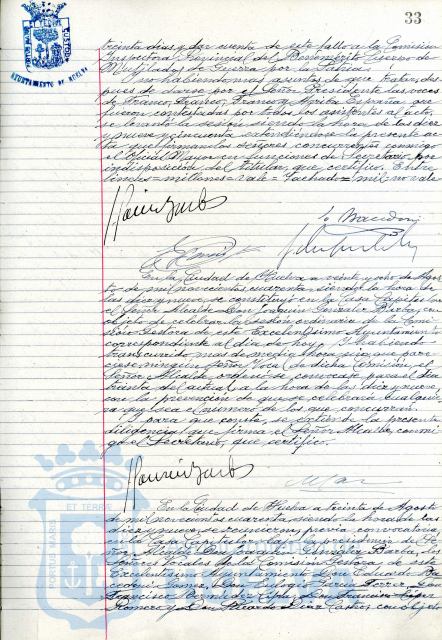 33
AYUNTAMIENTO DE HUELVA
treinta dias, y dar cuenta de este fallo a la Comision
Inspectora Provincial del Benemerito Cuerpo de
Mutilados de Guerra por la Patria.
no habiendo mas asuntos de que tratar, des
pues de darse por el Señor Presidente las voces
de Franco, Franco, Franco y Arriba España que
fueron contestadas por todos los asistentes al acto,
se levanto la sesion siendo la hora de las diez
y nueve y cincuenta extendiendose la presente ac
ta que firman los señores concurrentes conmigo
el Oficial Mayor en funciones de Secretario, por
indisposicion del titular, que certifico. Entre
lineas = millones = vale = Tachado = mil no vale
En la Ciudad de Huelva a veinte y ocho de Agos
to de mil novecientos cuarenta, siendo la hora de
las diez y nueve, se constituyó en la Casa Capitular
el Señor Alcalde Don Joaquin Gonzalez Barba, con
objeto de celebrar la sesion ordinaria de la Comi
sion Gestora de este Excelentisimo Ayuntamiento
correspondiente al dia de hoy, y habiendo
transcurrido mas de media hora sin que pare
ciese ningun señor Vocal de dicha Comision, el
Señor Alcalde ordenó se convocase para el dia
treinta del actual a la hora de las diez y nueve
con la prevencion de que se celebrará cualquie
ra que sea el numero de los que concurran.
Y para que conste, se extiende la presente
diligencia que firma el Señor Alcalde, conmi
go el Secretario, que certifico.
PORTUS MARIS ET TERRAE
En la Ciudad de Huelva a treinta de Agosto
de mil novecientos cuarenta, siendo la hora de las
diez y nueve, se reunieron, previa convocatoria
en la Casa Capitular bajo la presidencia del Se
ñor Alcalde Don Joaquin Gonzalez Barba, los
señores Vocales de la Comision Gestora de este
Excelentisimo Ayuntamiento Don Eduardo
Gomez, Don Eulogio Garcia Ferrer, Don
Francisco Bermudez Don Francisco Lopez
Romero y Don Ricardo Diaz Castro, con objeto